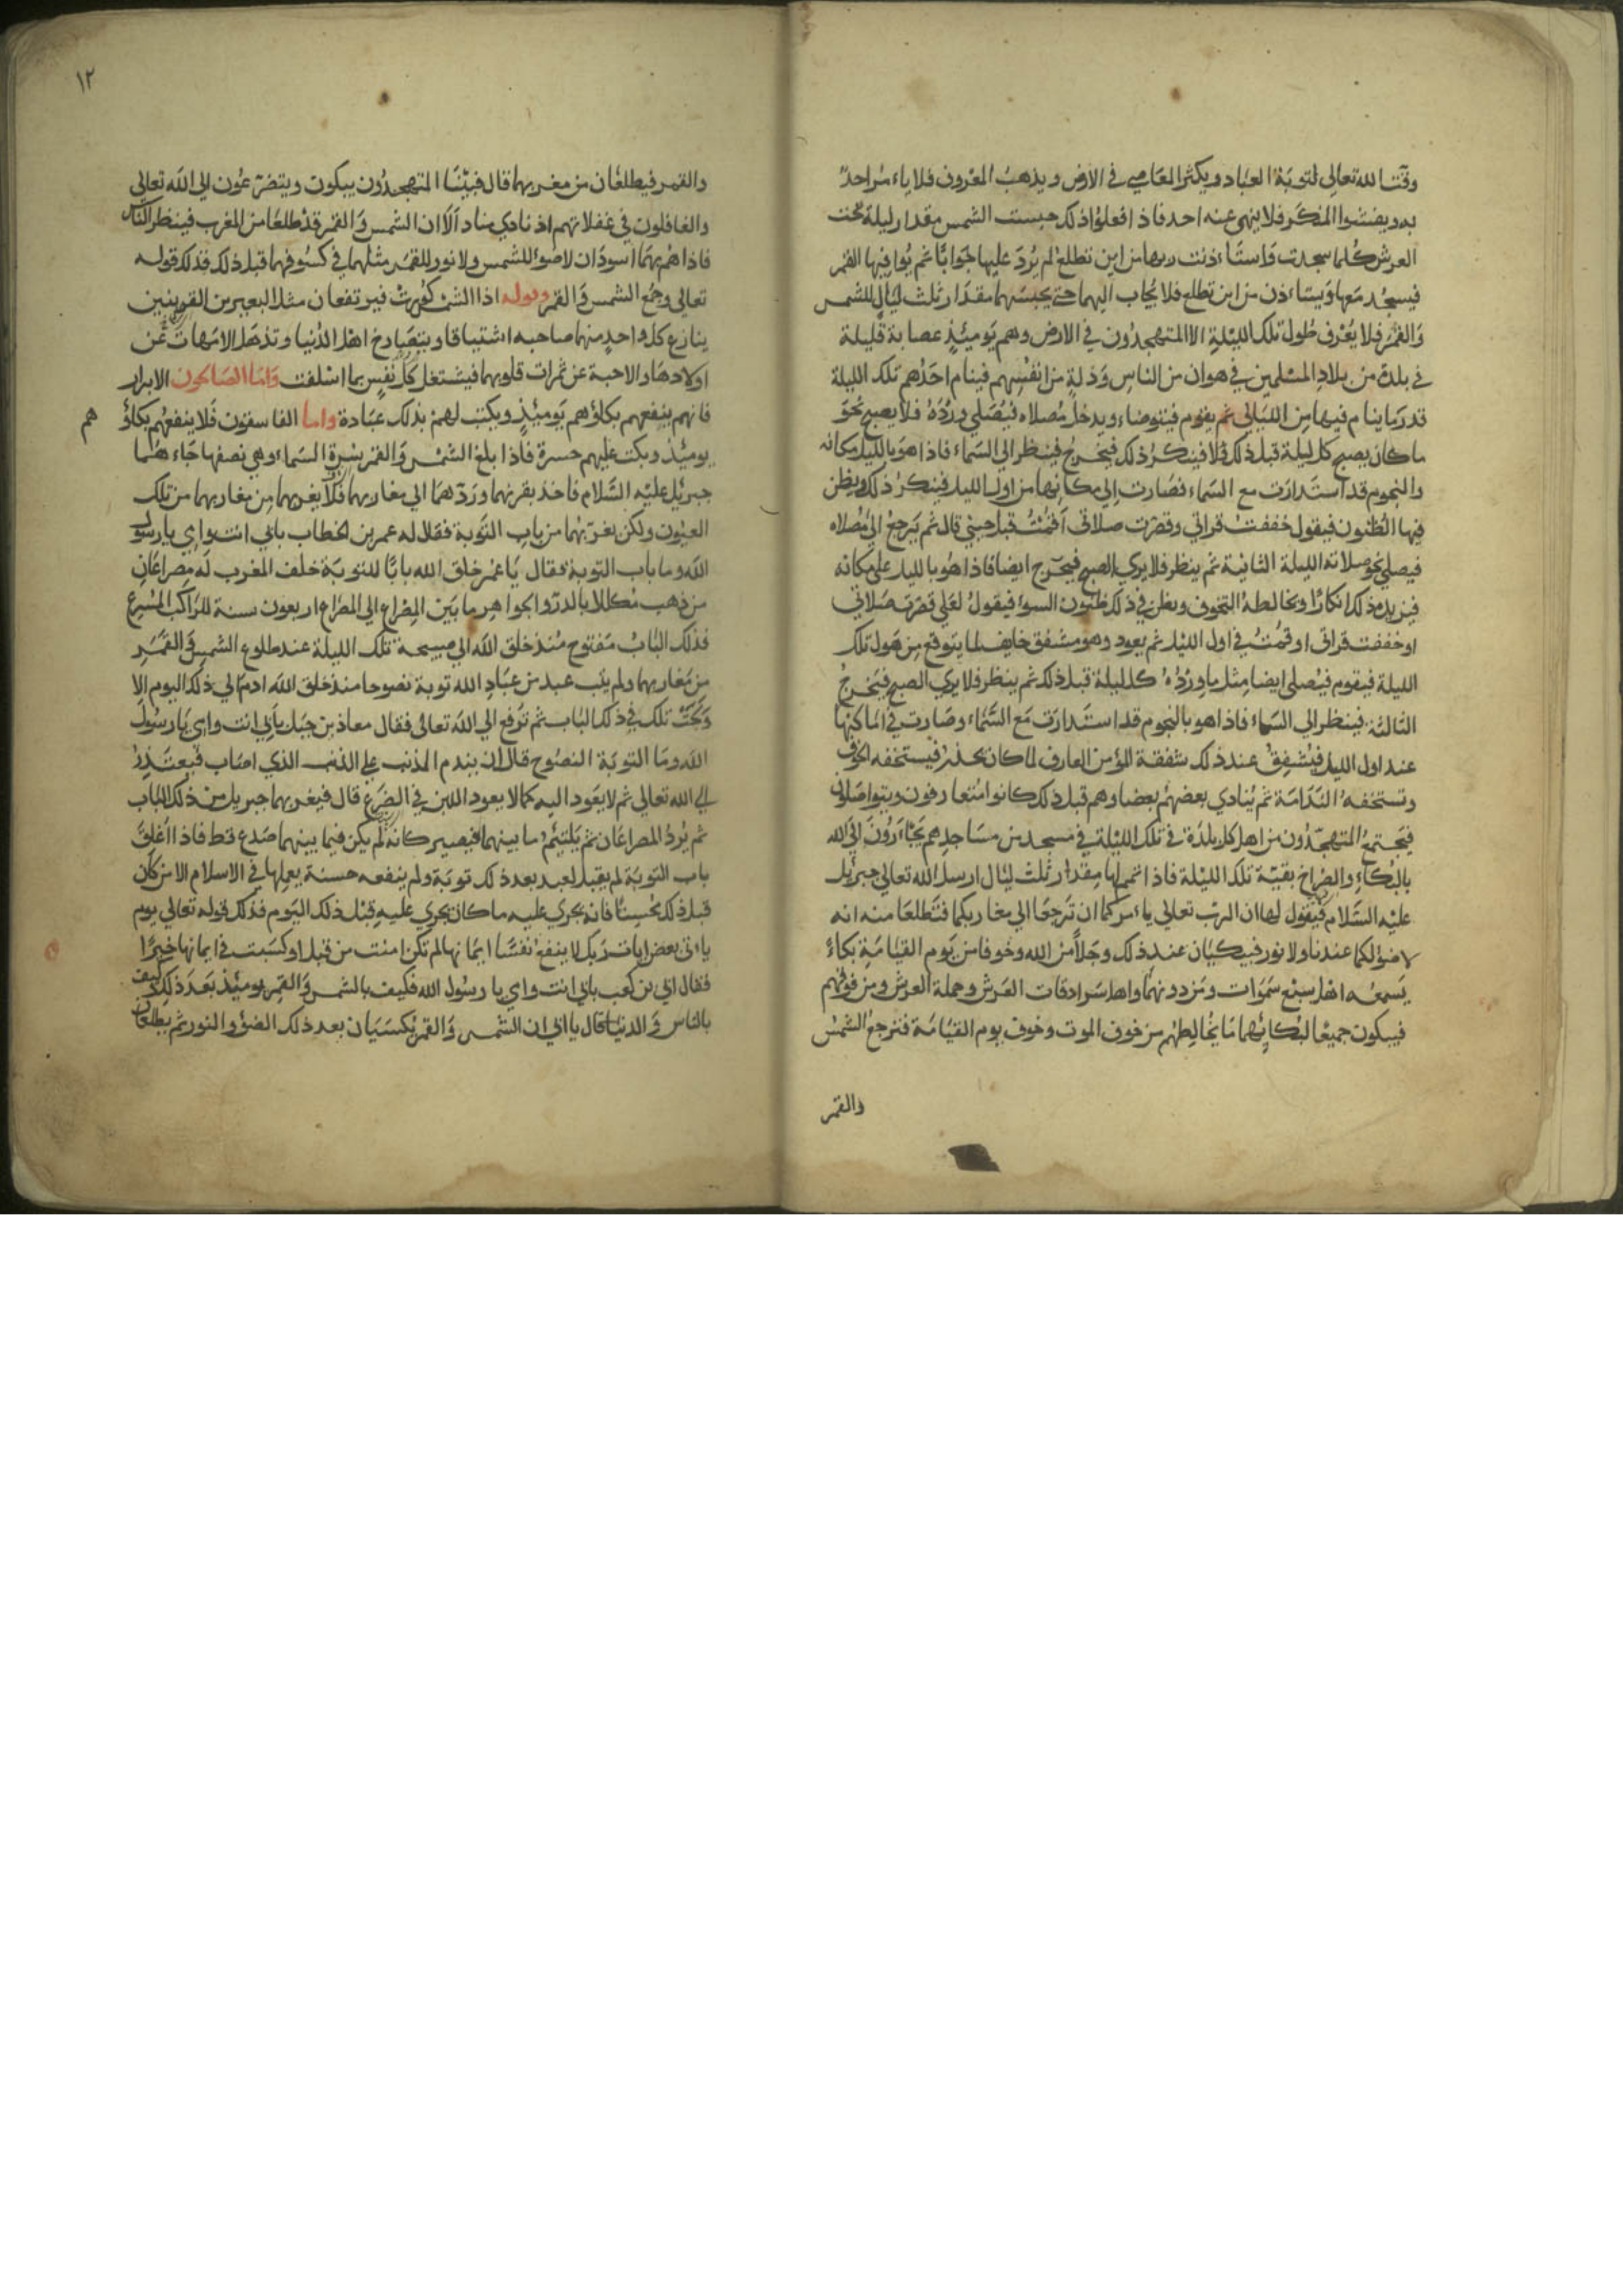 وقت الله تعالى لتوبة العباد ويكثر المعاصي في الارض ويذهب المعروف فلا ياءمر احد
به ويفشوا المنكر فلا ينهي عنه احد فاذا فعلوا ذلك حبست الشمس مقدار ليلة تحت
العرش كلما سجدت واستاءذنت ربها من اين تطلع لم يرد عليها جوابا ثم يوافيها القمر
فيسجد معها ويستاءذن من اين تطلع فلا يجاب اليهما حتي يحبسهما مقدار ثلث ليال للشمس
والقمر فلا يعرف طول تلك الليلة الا المتهجدون في الارض وهم يومئذ عصابة قليلة
في بلدة من بلاد المسلمين في هوان من الناس وذلة من انفسهم فينام احدهم تلك الليلة
قدر ما ينام فيها من الليالي ثم يقوم فيتوضاء ويدخل مصلاه فيصلي ورده فلا يصبح نحو
ما كان يصبح كل ليلة قبل ذلك فلا فينكر ذلك فيخرج فينظر الي السماء فاذا هو بالليل مكانه
والنجوم قد استدارت مع السماء فصارت الي مكانها من اول الليل فينكر ذلك ويظن
فيها الظنون فيقول خففت قراتي وقصرت صلاتي ام قمت قبل حيني قال ثم يرجع الي مصلاه
فيصلي نحو صلاته الليلة الثانية ثم ينظر فلا يري الصبح فيخرج ايضا فاذا هو بالليل على مكانه
فيزيده ذلك انكارا ويخالطه التخوف ويظن في ذلك ظنون السوء فيقول لعلي قصرت صلاتي
او خففت قراتي او قمت في اول الليل ثم يعود وهو مشفق خايف لما يتوقع من هول تلك
الليلة فيقوم فيصلي ايضا مثل ما ورده كل ليلة قبل ذلك ثم ينظر فلا يري الصبح فيخرج
الثالثة فينظر الي السماء فاذا هو بالنجوم قد استدارت مع السماء وصارت في اماكنها
عند اول الليل فيشفق عند ذلك شفقة المؤمن العارف لما كان يحذر فيستخفه الخوف
وتستخفه الندامة ثم ينادي بعضهم بعضا وهم قبل ذلك كانوا متعارفون ويتواصلون
فيجتمع المتهجدون من اهل كل بلدة في تلك الليلة في مسجد من مساجدهم يجاءرون الي الله
بالبكاء والصراخ بقية تلك الليلة فاذا تم لهما مقدار ثلث ليال ارسل الله تعالي جبرئيل
عليه السلام فيقول لهما ان الرب تعالي ياءمركما ان ترجعا الي مغاربكما فتطلعا منه انه
لا ضوء لكما عندنا ولا نور فيبكيان عند ذلك وجلا من الله وخوفا من يوم القيامة بكاء
يسمعه اهل سبع سموات ومن دونهما واهل سرادقات العرش وحملة العرش ومن فوقهم
فيبكون جميعا لبكائهما ما يخالطهم من خوف الموت وخوف يوم القيامة فترجع الشمس
والقمر
١٢
والقمر فيطلعان من مغربهما قال فبينما المتهجدون يبكون ويتضرعون الي الله تعالي
والغافلون في غفلاتهم اذ نادي مناد ألا ان الشمس والقمر قد طلعا من المغرب فينظر الناس
فاذا هم بهما اسودان لا ضوء للشمس ولا نور للقمر مثلهما في كسوفهما قبل ذلك فذلك قوله
تعالي وجمع الشمس والقمر وقوله اذا الشمس كورت فيرتفعان مثل البعيرين القرينين
ينازع كل واحد منهما صاحبه اشتياقا ويتصارخ اهل الدنيا وتذهل الامهات عن
اولادها والاحبة عن ثمرات قلوبهما فيشتغل كل نفس بما اسلفت واما الصالحون الابرار
فانهم ينفعهم بكاؤهم يومئذ ويكتب لهم بذلك عبادة واما الفاسقون فلا ينفعهم بكاؤ
هم
يومئذ ويكتب عليهم حسرة فاذا بلغ الشمس والقمر سرة السماء وهي نصفها جاء هما
جبرئيل عليه السلام فاخذ بقرنهما وردهما الي مغاربهما فلا يغربهما من مغاربهما من تلك
العيون ولكن يغربهما من باب التوبة فقال له عمر بن الخطاب بابي انت وامي يا رسول
الله وما باب التوبة فقال يا عمر خلق الله بابا للتوبة خلف المغرب له مصراعان
من ذهب مكللا بالدر والجواهر ما بين المصراع الي المصراع اربعون سنة للراكب المسرع
فذلك الباب مفتوح منذ خلق الله الي صبيحة تلك الليلة عند طلوع الشمس والقمر
من مغاربهما ولم يتب عبد من عباد الله توبة نصوحا منذ خلق الله ادم الي ذلك اليوم الا
ولجت تلك في ذلك الباب ثم ترفع الي الله تعالى فقال معاذ بن جبل بابي انت وامي يا رسول
الله وما التوبة النصوح قال ان يندم المذنب علي الذنب الذي اصاب فيعتذر
الي الله تعالي ثم لا يعود اليه كما لا يعود اللبن في الضرع قال فيغربهما جبريل من ذلك الباب
ثم يرد المصراعان ثم يلتئم ما بينهما فيصير كانه لم يكن فيما بينهما صدع قط فاذا اغلق
باب التوبة لم يقبل لعبد بعد ذلك توبة ولم ينفعه حسنة يعملها في الاسلام الا من كان
قبل ذلك محسنا فانه يجري عليه ما كان يجري عليه قبل ذلك اليوم فذلك قوله تعالي يوم
ياءتي بعض ايات ربك لا ينفع نفسا ايمانها لم تكن امنت من قبل او كسبت في ايمانها خيرا
فقال ابي بن كعب بابي انت وامي يا رسول الله فكيف بالشمس والقمر يومئذ بعد ذلك وكيف
بالناس والدنيا قال يا ابي ان الشمس والقمر يكسيان بعد ذلك الضوء والنور ثم يطلعان